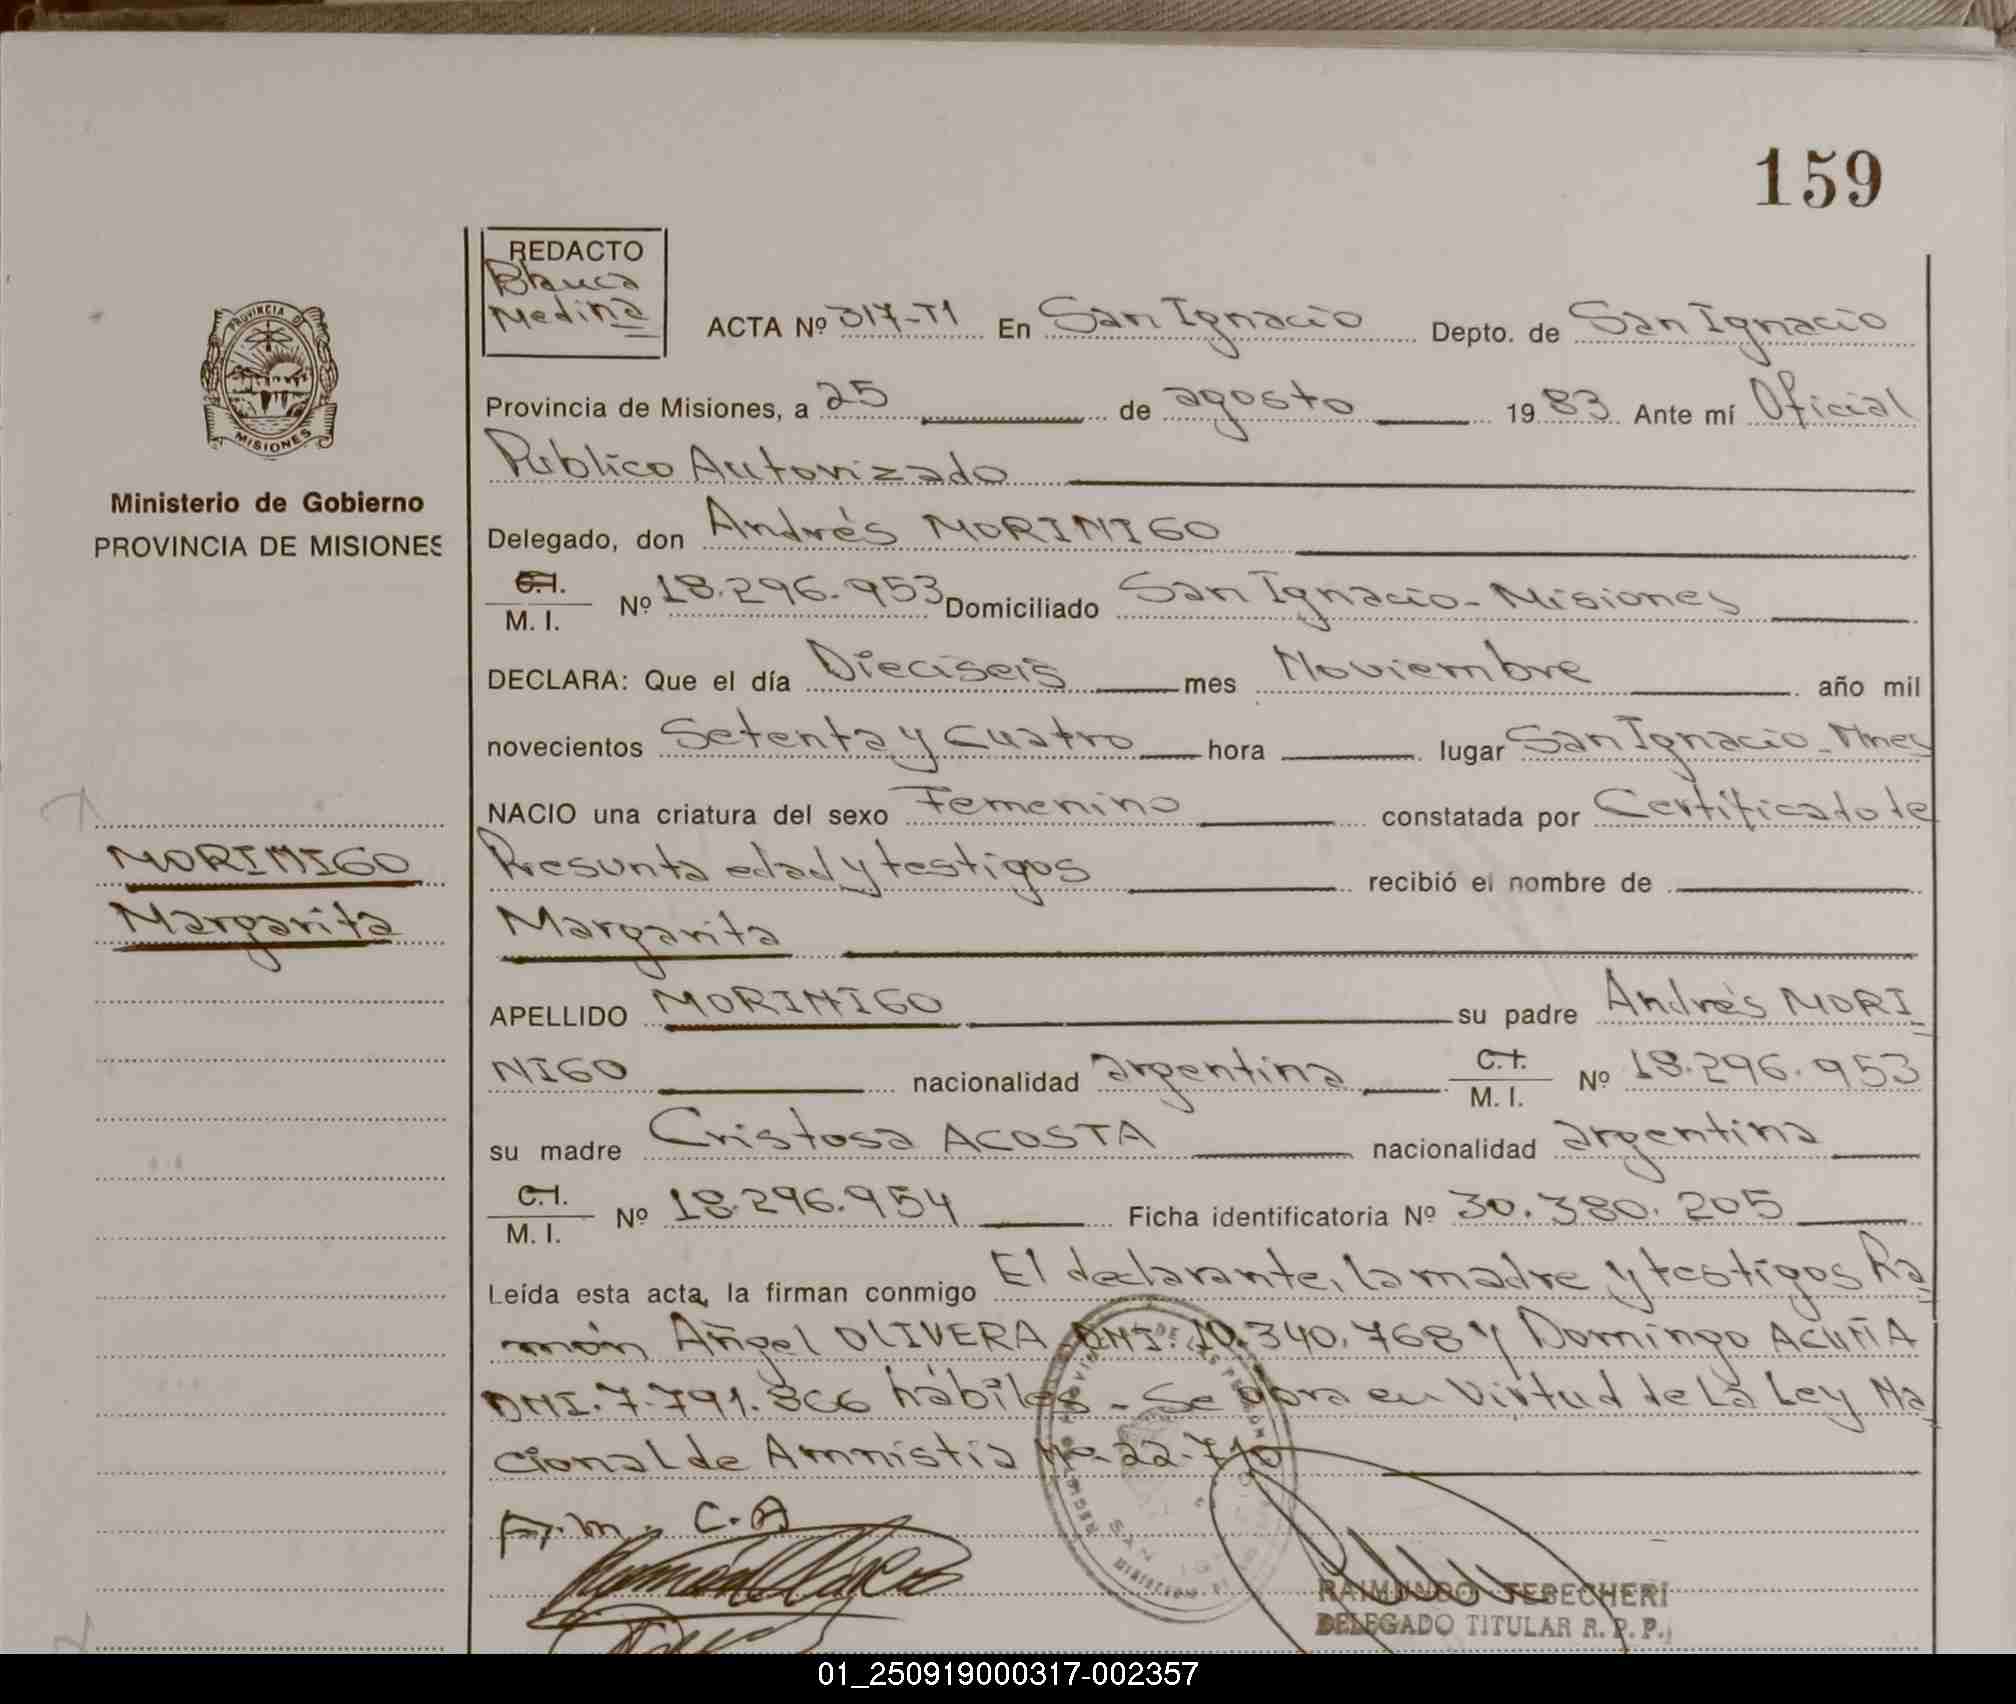 159
REDACTO
Blanca
Medina
ACTA Nº 317-T1 En San Ignacio Depto. de San Ignacio
Provincia de Misiones, a 25 de agosto 1983 Ante mí Oficial
Publico Autorizado
PROVINCIA DE
MISIONES
Ministerio de Gobierno
PROVINCIA DE MISIONES
Delegado, don Andrés MORINIGO
C.I.
M. I. Nº 18.296.953 Domiciliado San Ignacio - Misiones
DECLARA: Que el día Dieciseis mes Noviembre año mil
novecientos Setenta y cuatro hora lugar San Ignacio - Mnes
NACIO una criatura del sexo Femenino constatada por Certificado de
MORINIGO
Margarita
Presunta edad y testigos recibió el nombre de
Margarita
APELLIDO MORINIGO su padre Andrés MORI
NIGO nacionalidad argentina C.I.
M. I. Nº 18.296.953
su madre Cristosa ACOSTA nacionalidad argentina
C.I.
M. I. Nº 18.296.954 Ficha identificatoria Nº 30.380.205
Leída esta acta, la firman conmigo El declarante, la madre y testigos Ra
món Angel OLIVERA DNI. 10.340.768 y Domingo ACUÑA
DNI. 7.791.366 hábiles - Se obra en Virtud de La Ley Na
cional de Amnistia Nº 22.710
A.M. C.A
Ramón Olivera
RAIMUNDO TEBECHERI
DELEGADO TITULAR R. P. P.
01_250919000317-002357